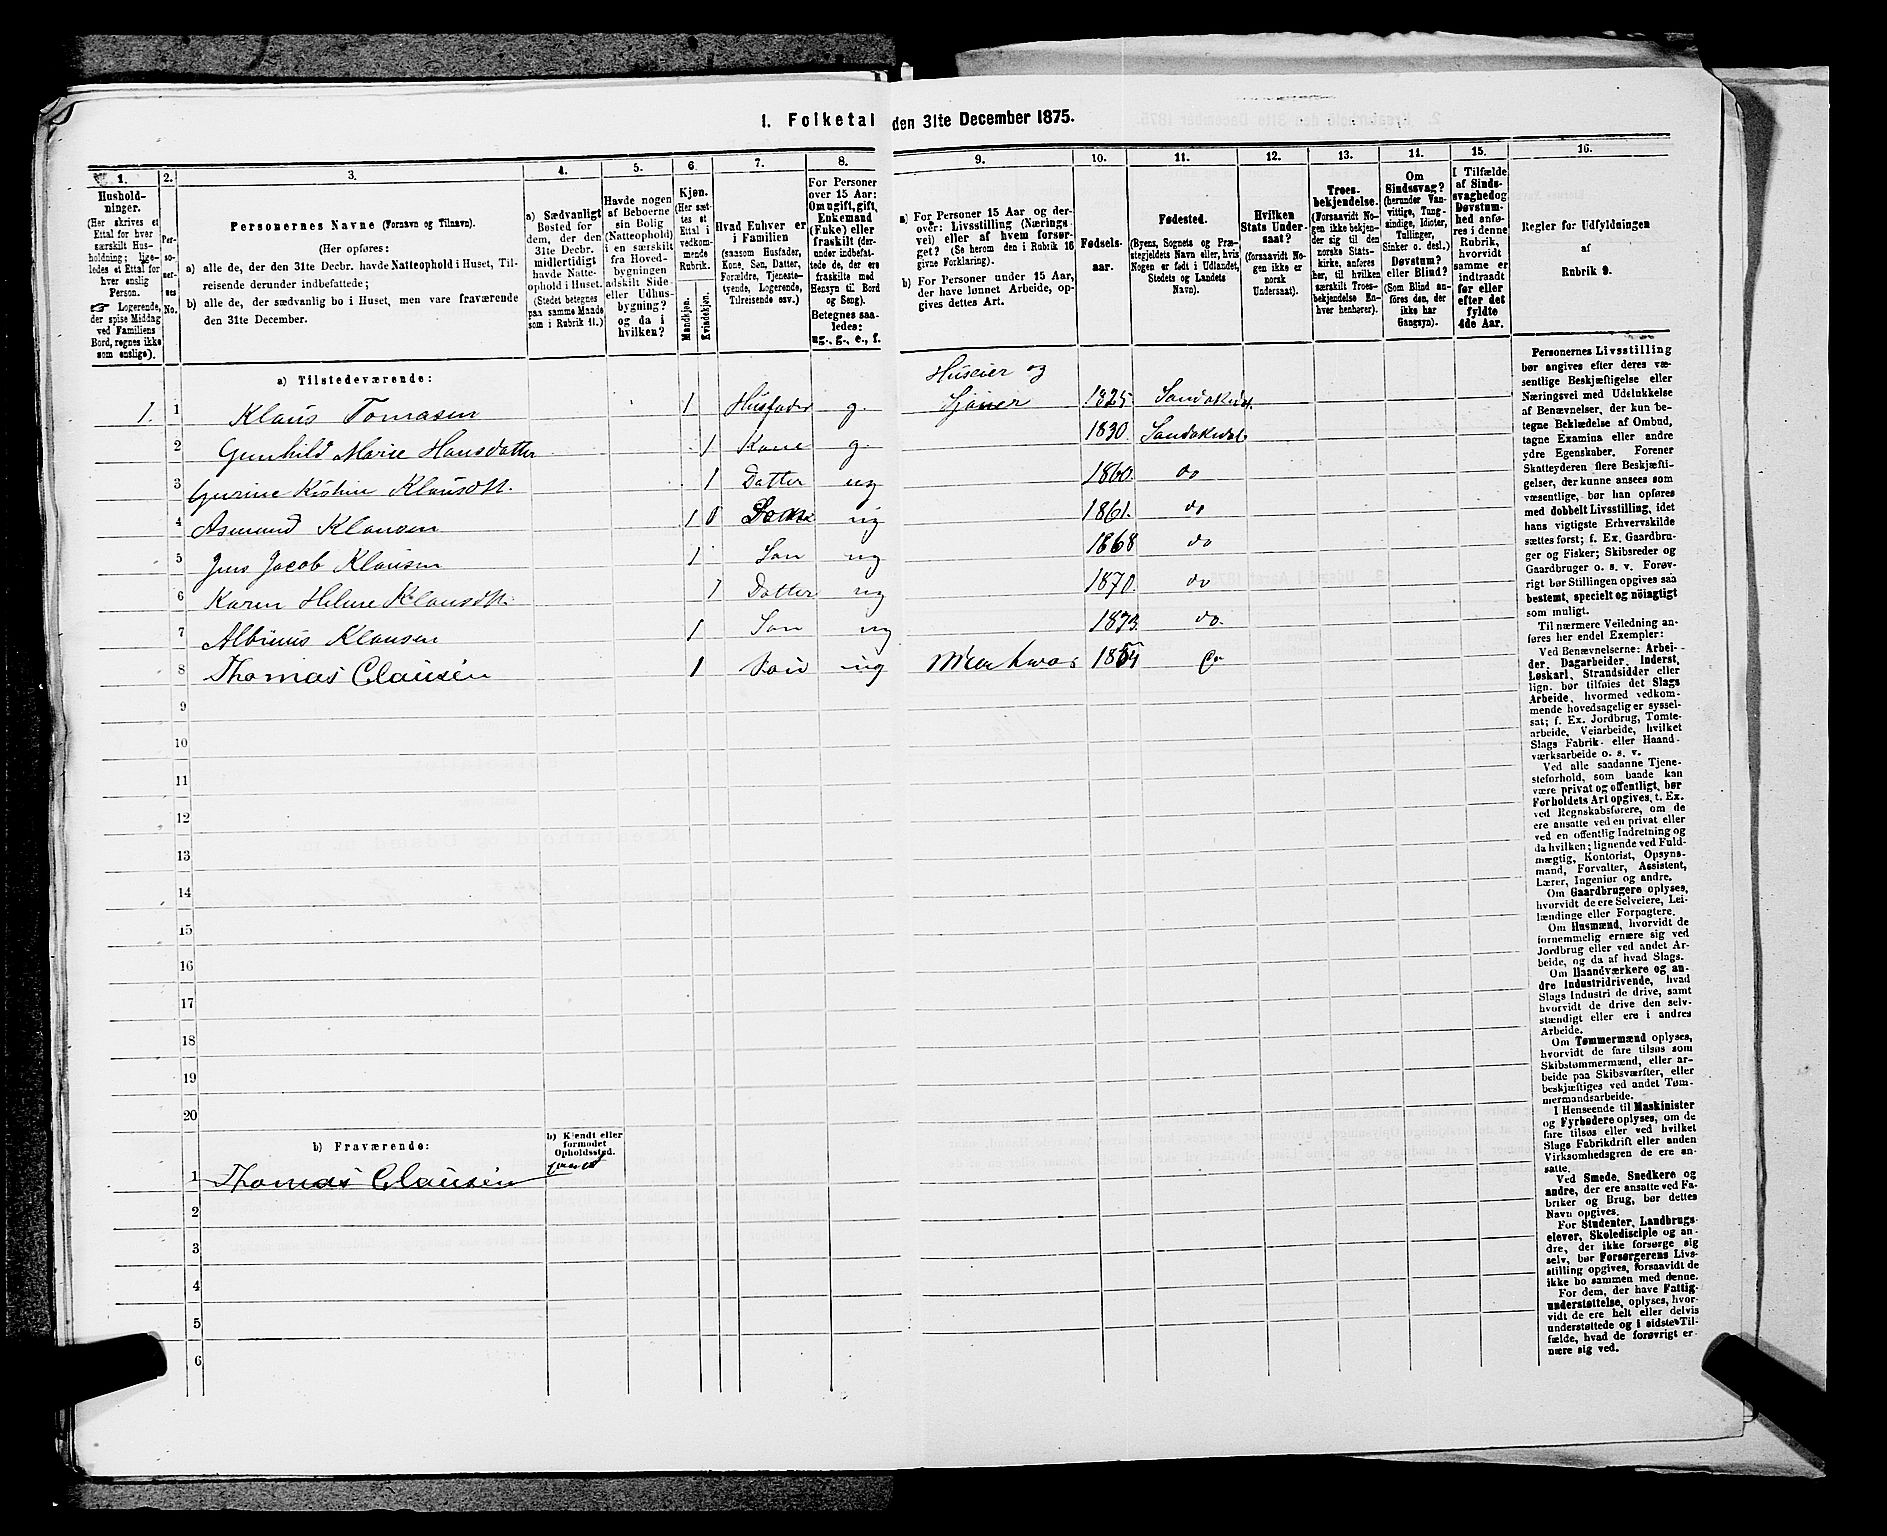 1. Folketal den 31te December 1875.
1. 2. 3. 4. 5. 6. 7. 8. 9. 10. 11. 12. 13. 14. 15. 16.
Hushold-
ninger.
(Her skrives et
Ettal for hver
særskilt Hus-
holdning; lige-
ledes et Ettal for
hver enslig
Person.
☞ Logerende,
der spise Middag
ved Familiens
Bord, regnes ikke
som enslige).
Per-
so-
ner-
nes
No.
Personernes Navne (Fornavn og Tilnavn).
(Her opføres:
a) alle de, der den 31te Decbr. havde Natteophold i Huset, Til-
reisende derunder indbefattede;
b) alle de, der sædvanlig bo i Huset, men vare fraværende
den 31te December.
a) Sædvanligt
Bosted for
dem, der den
31te Decbr.
midlertidigt
havde Natte-
ophold i Huset.
(Stedet betegnes
paa samme Maade
som i Rubrik 11.)
Havde nogen
af Beboerne
sin Bolig
(Natteophold)
i en særskilt
fra Hoved-
bygningen
adskilt Side-
eller Udhus-
bygning?
og da i
hvilken?
Kjøn.
(Her sæt-
tes et
Ettal i
vedkom-
mende
Rubrik.
Mandkjøn.
Kvindekjøn.
Hvad Enhver er
i Familien
(saasom Husfader,
Kone, Søn, Datter,
Forældre, Tjeneste-
tyende, Logerende,
Tilreisende osv.)
For Personer
over 15 Aar:
Om ugift, gift,
Enkemand
(Enke) eller
fraskilt (der-
under indbefat-
tede de, der ere
fraskilte med
Hensyn til Bord
og Seng).
Betegnes saa-
ledes:
ug., g., e., f.
a) For Personer 15 Aar og der-
over: Livsstilling (Nærings-
vei) eller af hvem forsør-
get? (Se herom den i Rubrik 16
givne Forklaring).
b) For Personer under 15 Aar,
der have lønnet Arbeide, op-
gives dettes Art.
Fødsels-
aar.
Fødested.
(Byens, Sognets og Præ-
stegjeldets Navn eller, hvis
Nogen er født i Udlandet,
Stedets og Landets
Navn).
Hvilken
Stats Under-
saat?
(forsaavidt No-
gen ikke er
norsk
Undersaat).
Troes-
bekjendelse.
(Forsaavidt No-
gen ikke bekjen-
der sig til den
norske Stats-
kirke, anføres
her, til hvilken
særskilt Troes-
bekjendelse En-
hver henhører).
Om
Sindssvag?
(herunder Van-
vittige, Tung-
sindige, Idioter,
Tullinger,
Sinker o. desl.)
Døvstum?
eller Blind?
(Som Blind an-
føres den, der
ikke har
Gangsyn).
I Tilfælde
af Sinds-
svaghed og
Døvstum-
hed anfø-
res i denne
Rubrik,
hvorvidt
samme er
indtraadt
før eller
efter det
fyldte
4de Aar.
Regler for Udfyldningen
af
Rubrik 9.
a) Tilstedeværende:
Huseier og
1. 1 Klaus Tomasen 1 Husfader g. Sjöuer 1825. Sandøkedal.
2 Gunhild Marie Hansdatter 1 Kone g. 1830. Sandøkedal
3 Gurine Kistine Klausdtt. 1 Datter ug 1860. do
4 Asmund Klausen 1 ug 1861. do
5 Jens Jacob Klausen 1 Søn ug 1868 do
6 Karen Helene Klausdtt. 1 Datter ug 1870. do
7 Albinus Klausen 1 Søn ug 1873. do.
8 Thomas Clausén 1 Søn ug do
9
10
11
12
13
14
15
16
17
18
19
20
b) Fraværende:
b) Kjendt eller
formodet
Opholdssted.
1 Thomas Clausén
2
3
4
5
6
Personernes Livsstilling
bør angives efter deres væ-
sentlige Beskjæftigelse eller
Næringsvei med Udelukkelse
af Benævnelser, der kun be-
tegne Beklædelse af Ombud,
tagne Examina eller andre
ydre Egenskaber. Forener
Skatteyderen flere Beskjæfti-
gelser, der kunne ansees som
væsentlige, bør han opføres
med dobbelt Livsstilling, idet
hans vigtigste Erhvervskilde
sættes først; f. Ex. Gaardbru-
ger og Fisker; Skibsreder og
Gaardbruger o. s. v. Forøv-
rigt bør Stillingen opgives saa
bestemt, specielt og nöiagtigt
som muligt.
Til nærmere Veiledning an-
føres her endel Exempler:
Ved Benævnelserne: Arbei-
der, Dagarbeider, Inderst,
Løskarl, Strandsidder eller
lign. bør tilføies det Slags
Arbeide, hvormed vedkom-
mende hovedsagelig er syssel-
sat; f. Ex. Jordbrug, Tomte-
arbeide, Veiarbeide, hvilket
Slags Fabrik- eller Haand-
værksarbeide o. s. v.
Ved alle saadanne Tjene-
steforhold, som baade kan
være privat og offentligt, bør
Forholdets Art opgives, t. Ex.
ved Regnskabsførere, om de
ere ansatte ved en privat eller
ved en offentlig Indretning og
da hvilken; lignende ved Fuld-
mægtig, Kontorist, Opsyns-
mand, Forvalter, Assistent,
Lærer, Ingeniør og andre.
Om Gaardbrugere oplyses,
hvorvidt de ere Selveiere, Lei-
lændinge eller Forpagtere.
Om Husmænd, hvorvidt de
fornemmelig ernære sig ved
Jordbrug eller ved andet Ar-
beide, og da af hvad Slags.
Om Haandværkere og an-
dre Industridrivende, hvad
Slags Industri de drive, samt
hvorvidt de drive den selv-
stændigt eller ere i andres
Arbeide.
Om Tømmermænd oplyses,
hvorvidt de fare tilsøs som
Skibstømmermænd, eller ar-
beide paa Skibsværfter, eller
beskjæftiges ved andet Tøm-
mermandsarbeide.
I Henseende til Maskinister
og Fyrbødere oplyses, om de
fare tilsøs eller ved hvilket
Slags Fabrikdrift eller anden
Virksomhedsgren de ere an-
satte.
Ved Smede, Snedkere og
andre, der ere ansatte ved Fa-
briker og Brug, bør dettes
Navn opgives.
For Studenter, Landbrugs-
elever, Skoledisciple og an-
dre, der ikke forsørge sig
selv, bør Forsørgerens Livs-
stilling opgives, forsaavidt de
ikke bo sammen med denne.
For dem, der have Fattig-
understøttelse, oplyses, hvor-
vidt de ere helt eller delvis
understøttede og i sidste Til-
fælde, hvad de forøvrigt er-
nære sig ved.